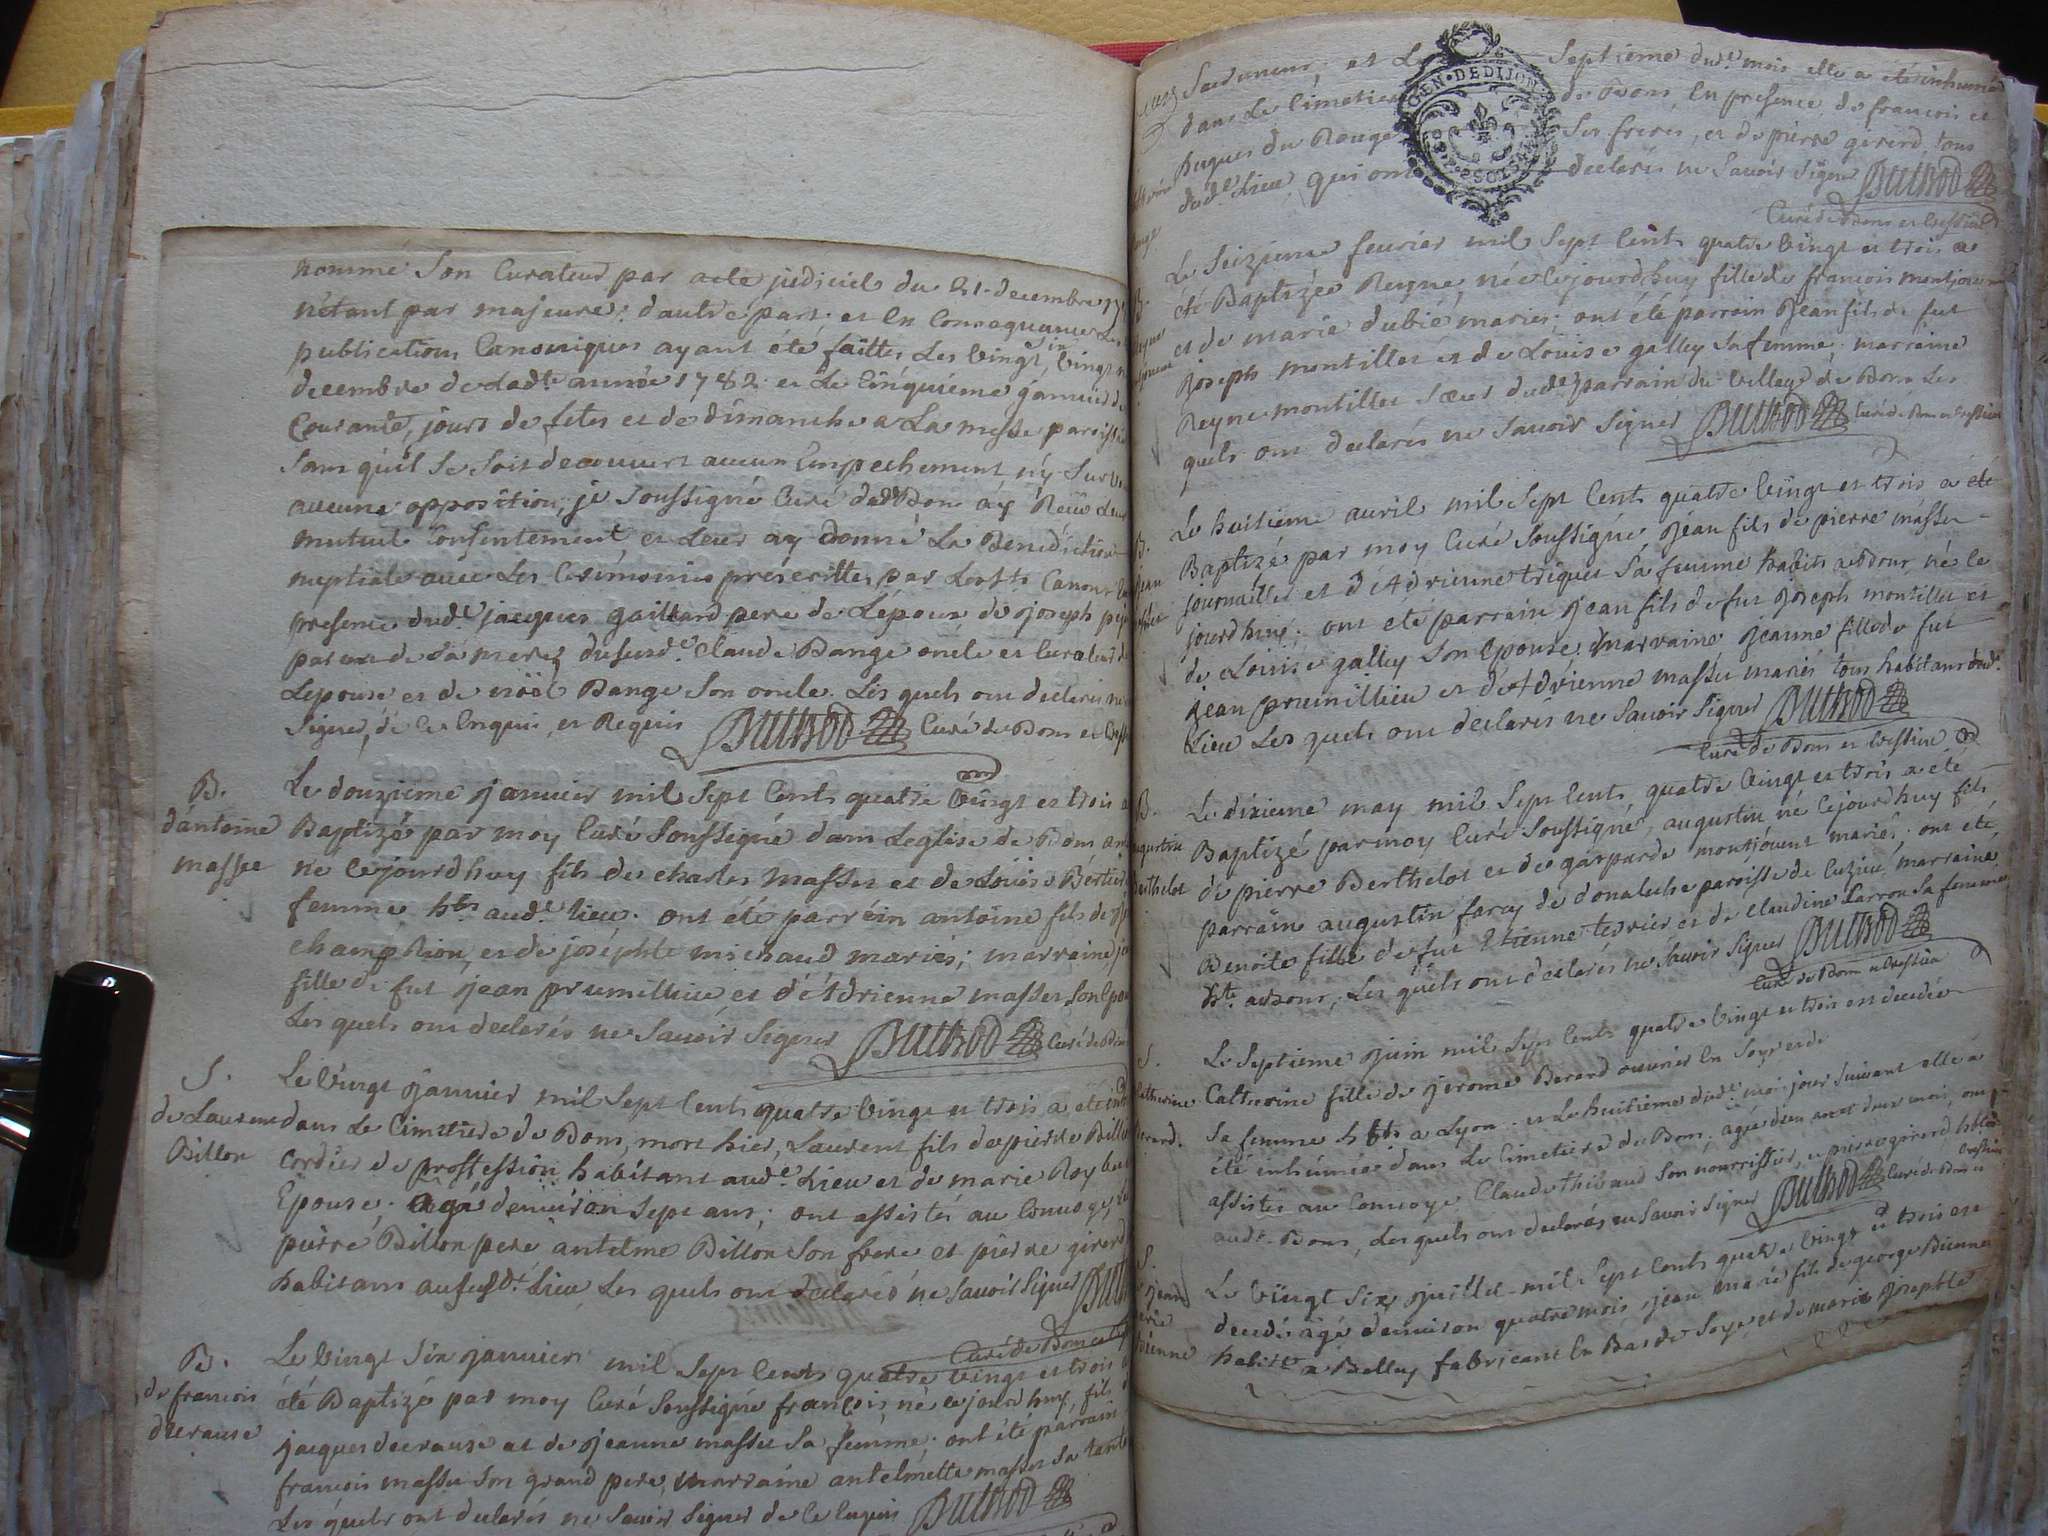 nommé Son Curateur par acte judiciel du 21. decembre
n'étant par majeure; d'autre part; et En Consequance Les
publications Canoniques ayant été faittes Les Vingt, Vingt
decembre de Ladte année 1782 et Le Cinquiéme janvier de
Courante, jours de fêtes et de dimanche a La messe paroiss
Sans qu'il Se Soit decouvert aucun Empechement n'y Surve
aucune opposition, je Soussigné Curé dud Bon ay Reçu Leur
mutuel Consentement et Leur ay Donné La Benediction
nuptiale avec Les Ceremonies préscrittes, par Les Sts Canons En
presence dude jacques gaillard pere de L'époux de joseph
parein de Sa mere, dususde Claude Bange oncle et Curateur de
Lepouse et de nöel Bange Son oncle. Les quels ont declarés ne
Signer, de ce Enquis, et Requis Buthod Curé de Bons et
B.
d'antoine
massee
Le douzieme janvier mil Sept Cents quatre Vingt et trois a
Baptizé par moy Curé Soussigné dans L'eglise de Bons
né Cejourdhuy fils de charles masser et de Loüise Bertier
femme hts aude lieu; ont été parréin antoine fils de
champRion, et de joséphte michaud mariés; marraine
fille de fut jean prumillieu et d'Adrienne masser Son Epo
Les quels ont declarés ne Savoir Signer Buthod Curé de Bons
S.
de Laurent
Billon
Le Vingt janvier mil Sept Cents quatre Vingt et trois a été
dans Le Cimetiere de Bons, mort hier, Laurent fils de pierre Billon
Cordier de proffession habitant aude Lieu et de marie Roy
Epouse. agé denviron Sept ans; ont assistés au Convoye,
pierre Billon pere antelme Billon Son frere et pierre girerd
habitans aususdt Lieu Les quels ont declarés ne Savoir Signer Buthod
Curé de Bons et
B.
de francois
decrause
Le Vingt Six janvier mil Sept Cents quatre Vingt et trois a
été Baptizé par moy Curé Soussigné françois, né cejourdhuy, fils
jacques decrause et de jeanne masser Sa femme; ont été parrain
francois masser Son grand pere, marraine antelmette masser Sa tante
Les quels ont declarés ne Savoir Signer de Ce Enquis Buthod
et Le Septieme dude mois elle a été inhumé
GEN. DE DIJON
dans Le Cimetiere de Bons, En presence de francois et
hugues du Rouge Ses freres, et de pierre girerd, tous
dude Lieu, qui ont declarés ne Savoir Signer Buthod
Curé de Bons et Cressieu
B.
Le Seizieme fevrier mil Sept Cents quatre Vingt et trois a
été Baptizée Reyne, née Cejourdhuy fille de francois
et de marie dubié mariés; ont été parrain jean fils de fut
joseph montillet et de Loüise galley Sa femme; marraine
Reyne montillet Sœur dude parrain du Village de Bons Les
quels ont declarés ne Savoir Signer Buthod Curé de Bons et Cressieu
B.
jean
Le huitieme avril mil Sept Cents quatre Vingt et trois a été
Baptizé par moy Curé Soussigné, jean fils de pierre masser
journallier et d'Adrienne triquet Sa femme habits a Bons, né Ce
jourdhuy; ont été parrain jean fils de fut joseph montillet et
de Loüise galley Son Epouse, marraine, jeanne fille de fut
jean prumillieu et d'Adrienne masser mariés tous habitans dude
Lieu Les quels ont declarés ne Savoir Signer Buthod
Curé de Bons et Cressieu
B.
augustin
Berthelot
Le dixieme may mil Sept Cents quatre Vingt et trois a été
Baptizé par moy Curé Soussigné, augustin né Cejourdhuy fils
de pierre Berthelot et de gasparde montjouvent mariés; ont été
parrain augustin farcy de paroisse de Cuzieu, marraine
Benoite fille de fut Etienne tervier et de Claudine Carron Sa femme
hte a Bons, Les quels ont declarés ne Savoir Signer Buthod
Curé de Bons et Cressieu
S.
Catherine
Berard.
Le Septieme juin mil Sept Cents quatre Vingt et trois est decedée
Catherine fille de jerome Berard ouvrier En Soye et de
Sa femme hbts a Lyon, et Le huitieme dude mois jour Suivant elle a
été inhumée dans Le Cimetiere de Bons; agée d'un an et deux mois, ont
assistés au Convoye Claude thibaud Son nourrissier, et pierre girerd hbts
aude Bons, Les quels ont declarés ne Savoir Signer Buthod Curé de Bons et Cressieu
S.
jean
marie
Bienne
Le Vingt Six juillet mil Sept Cents quatre Vingt et trois est
decedé agé denviron quatre mois, jean marie fils de george Bienne
habitt a Belley fabricant En Bas de Soye, et de marie josephte